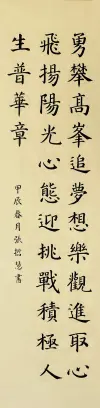 勇攀高峯追夢想樂觀進取心
飛揚陽光心態迎挑戰積極人
生普華章
甲辰春月張招慧書